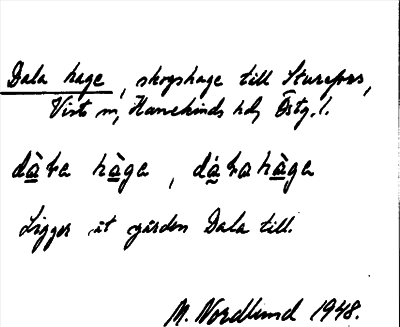 Dala hage, skogshage till Sturefors,
Vist sn, Hanekinds hd, Östg. l.
dàɽa hàga, dàɽahàga
Ligger åt gården Dala till.
M. Nordlund 1948.